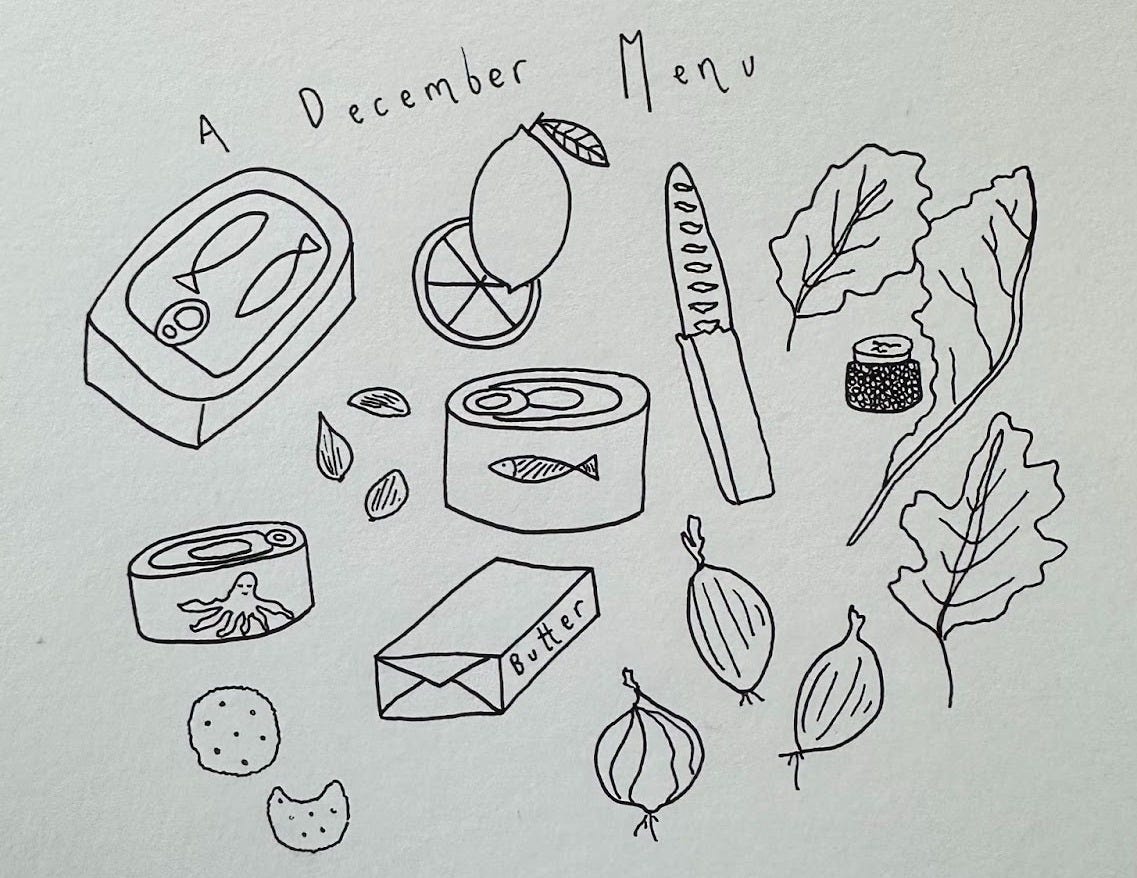 A December Menu
Butter